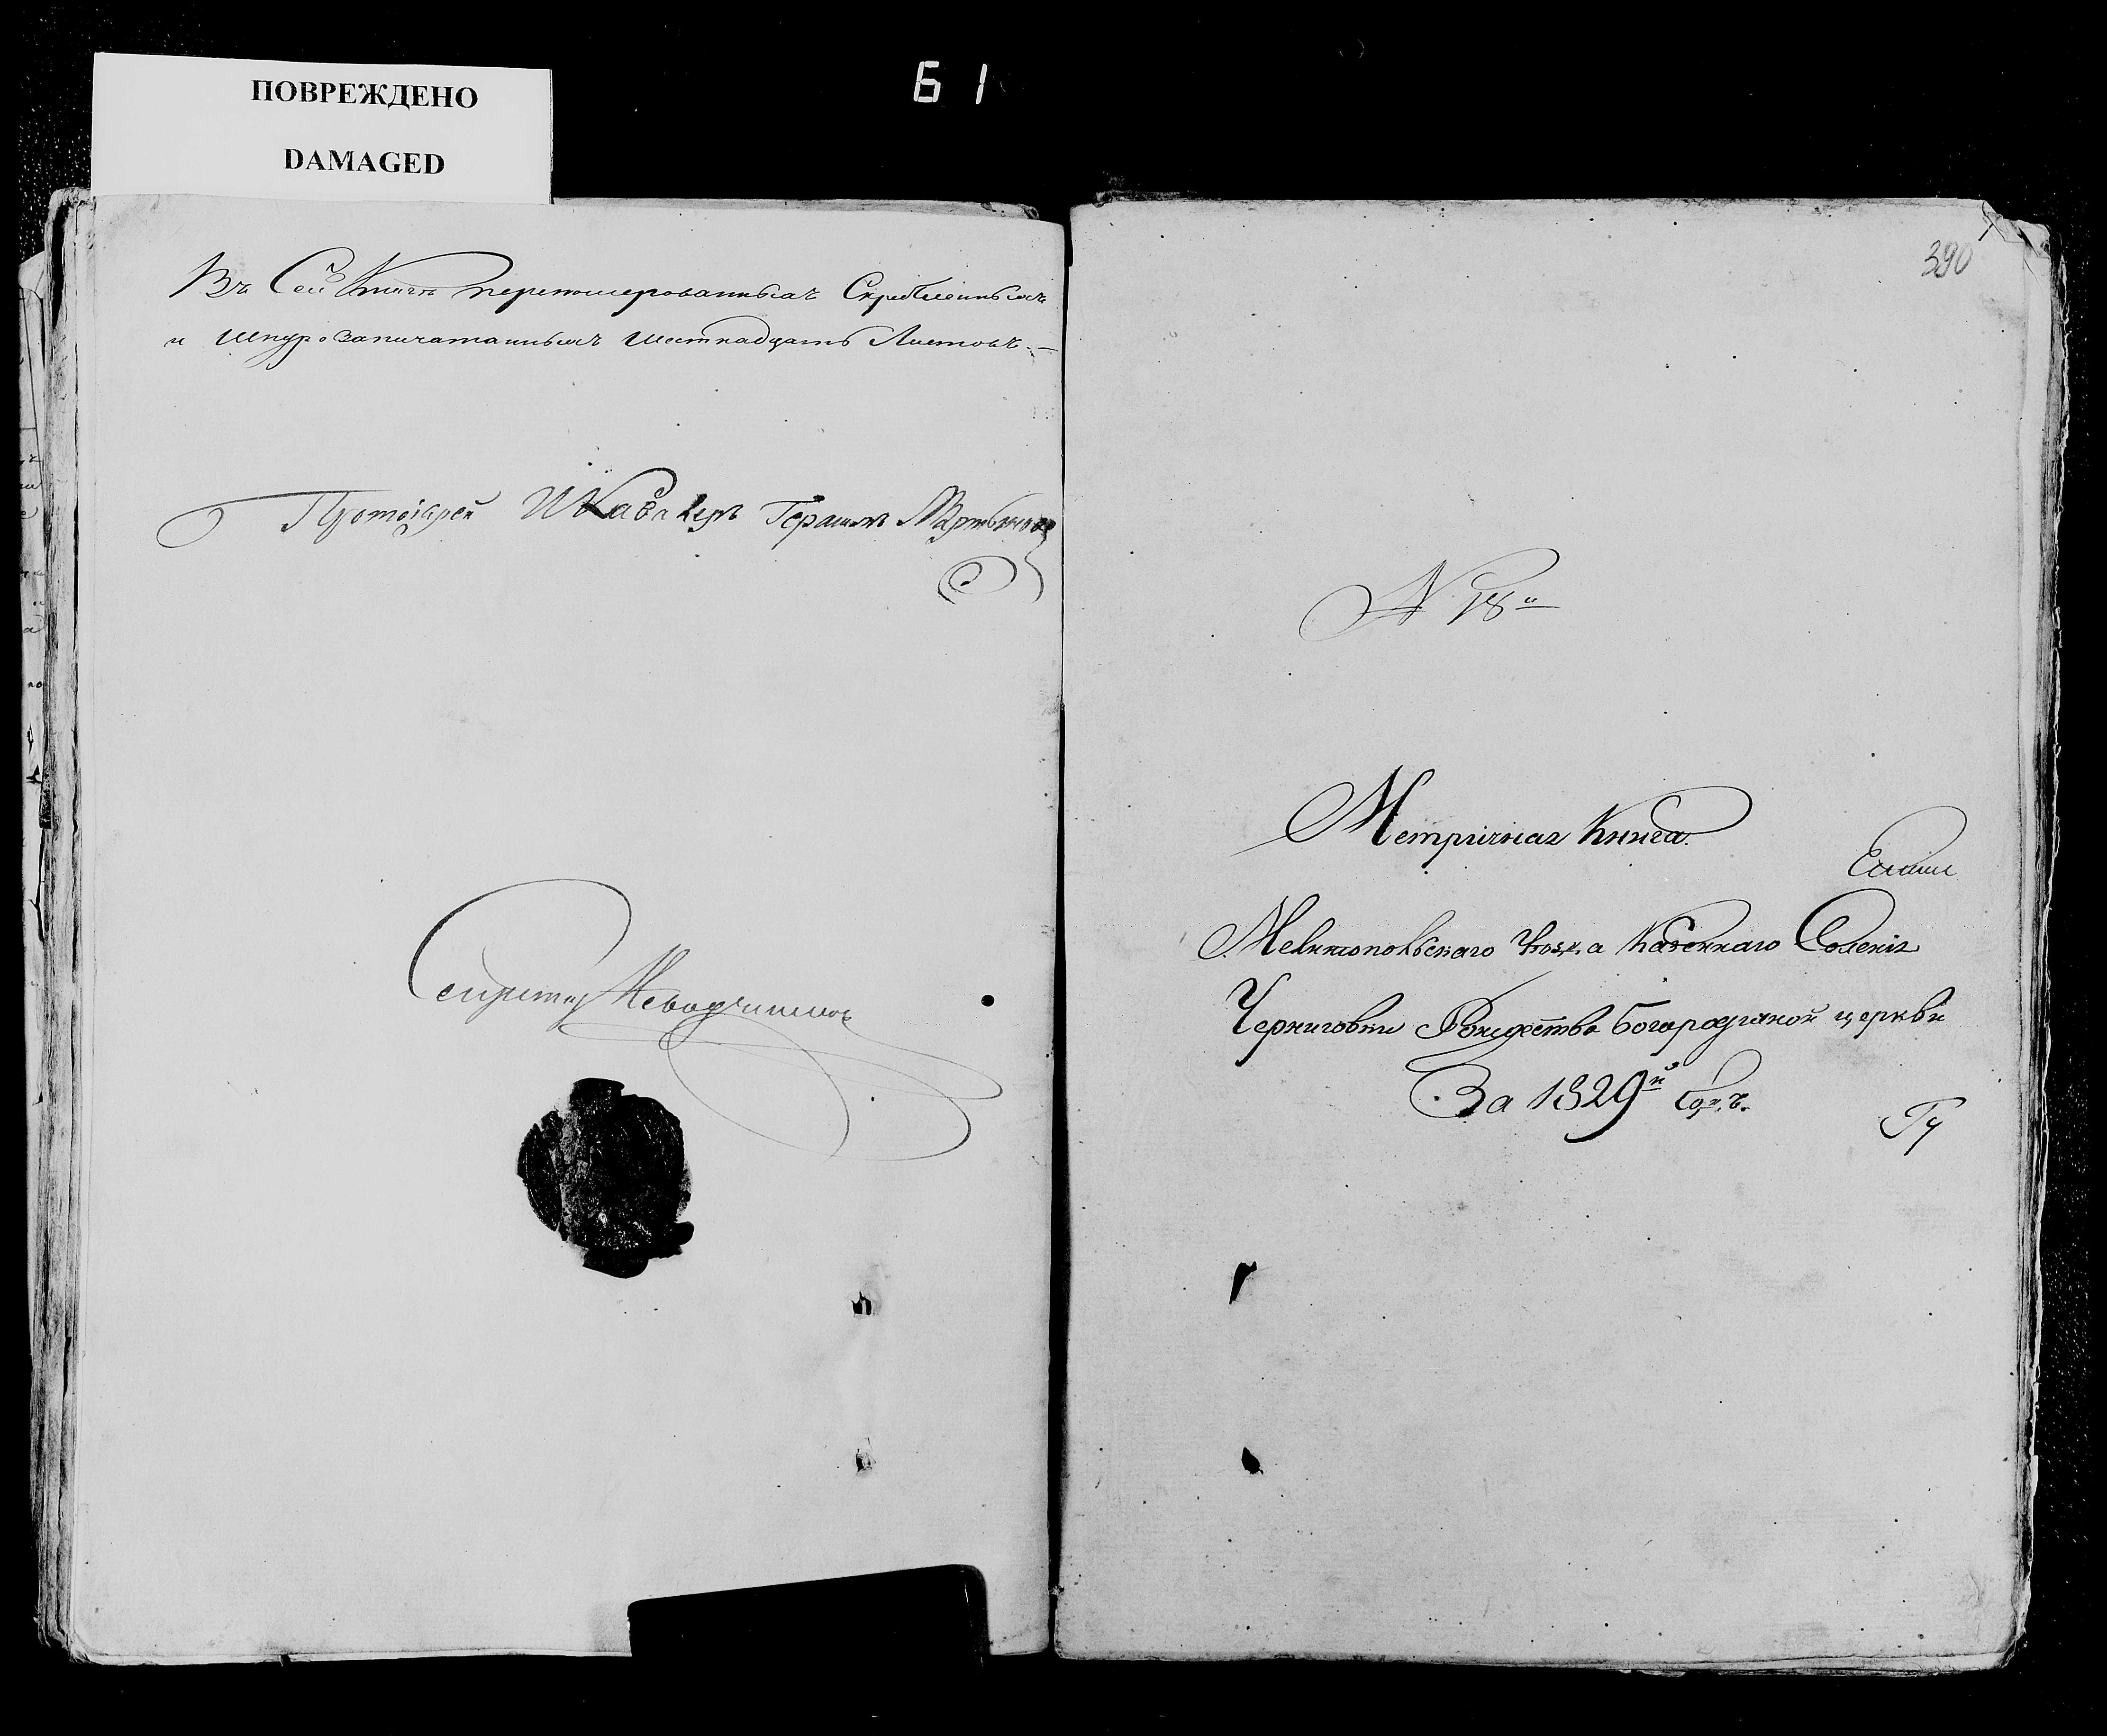 ПОВРЕЖДЕНО
DAMAGED
61
Въ Сей Книгѣ перенумерованныхъ Скрепленныхъ
и Шнурозапечатанныхъ Шестнадцать Листовъ. —
Протоіерей И Кавалеръ Герасимъ Мартыновъ
Секретарь
390
N 18й
Метричная Книга
Мелитопольскаго Уезда Казеннаго Селенія
Черниговки Рождества Богородичной церкви
За 1829й Годъ.